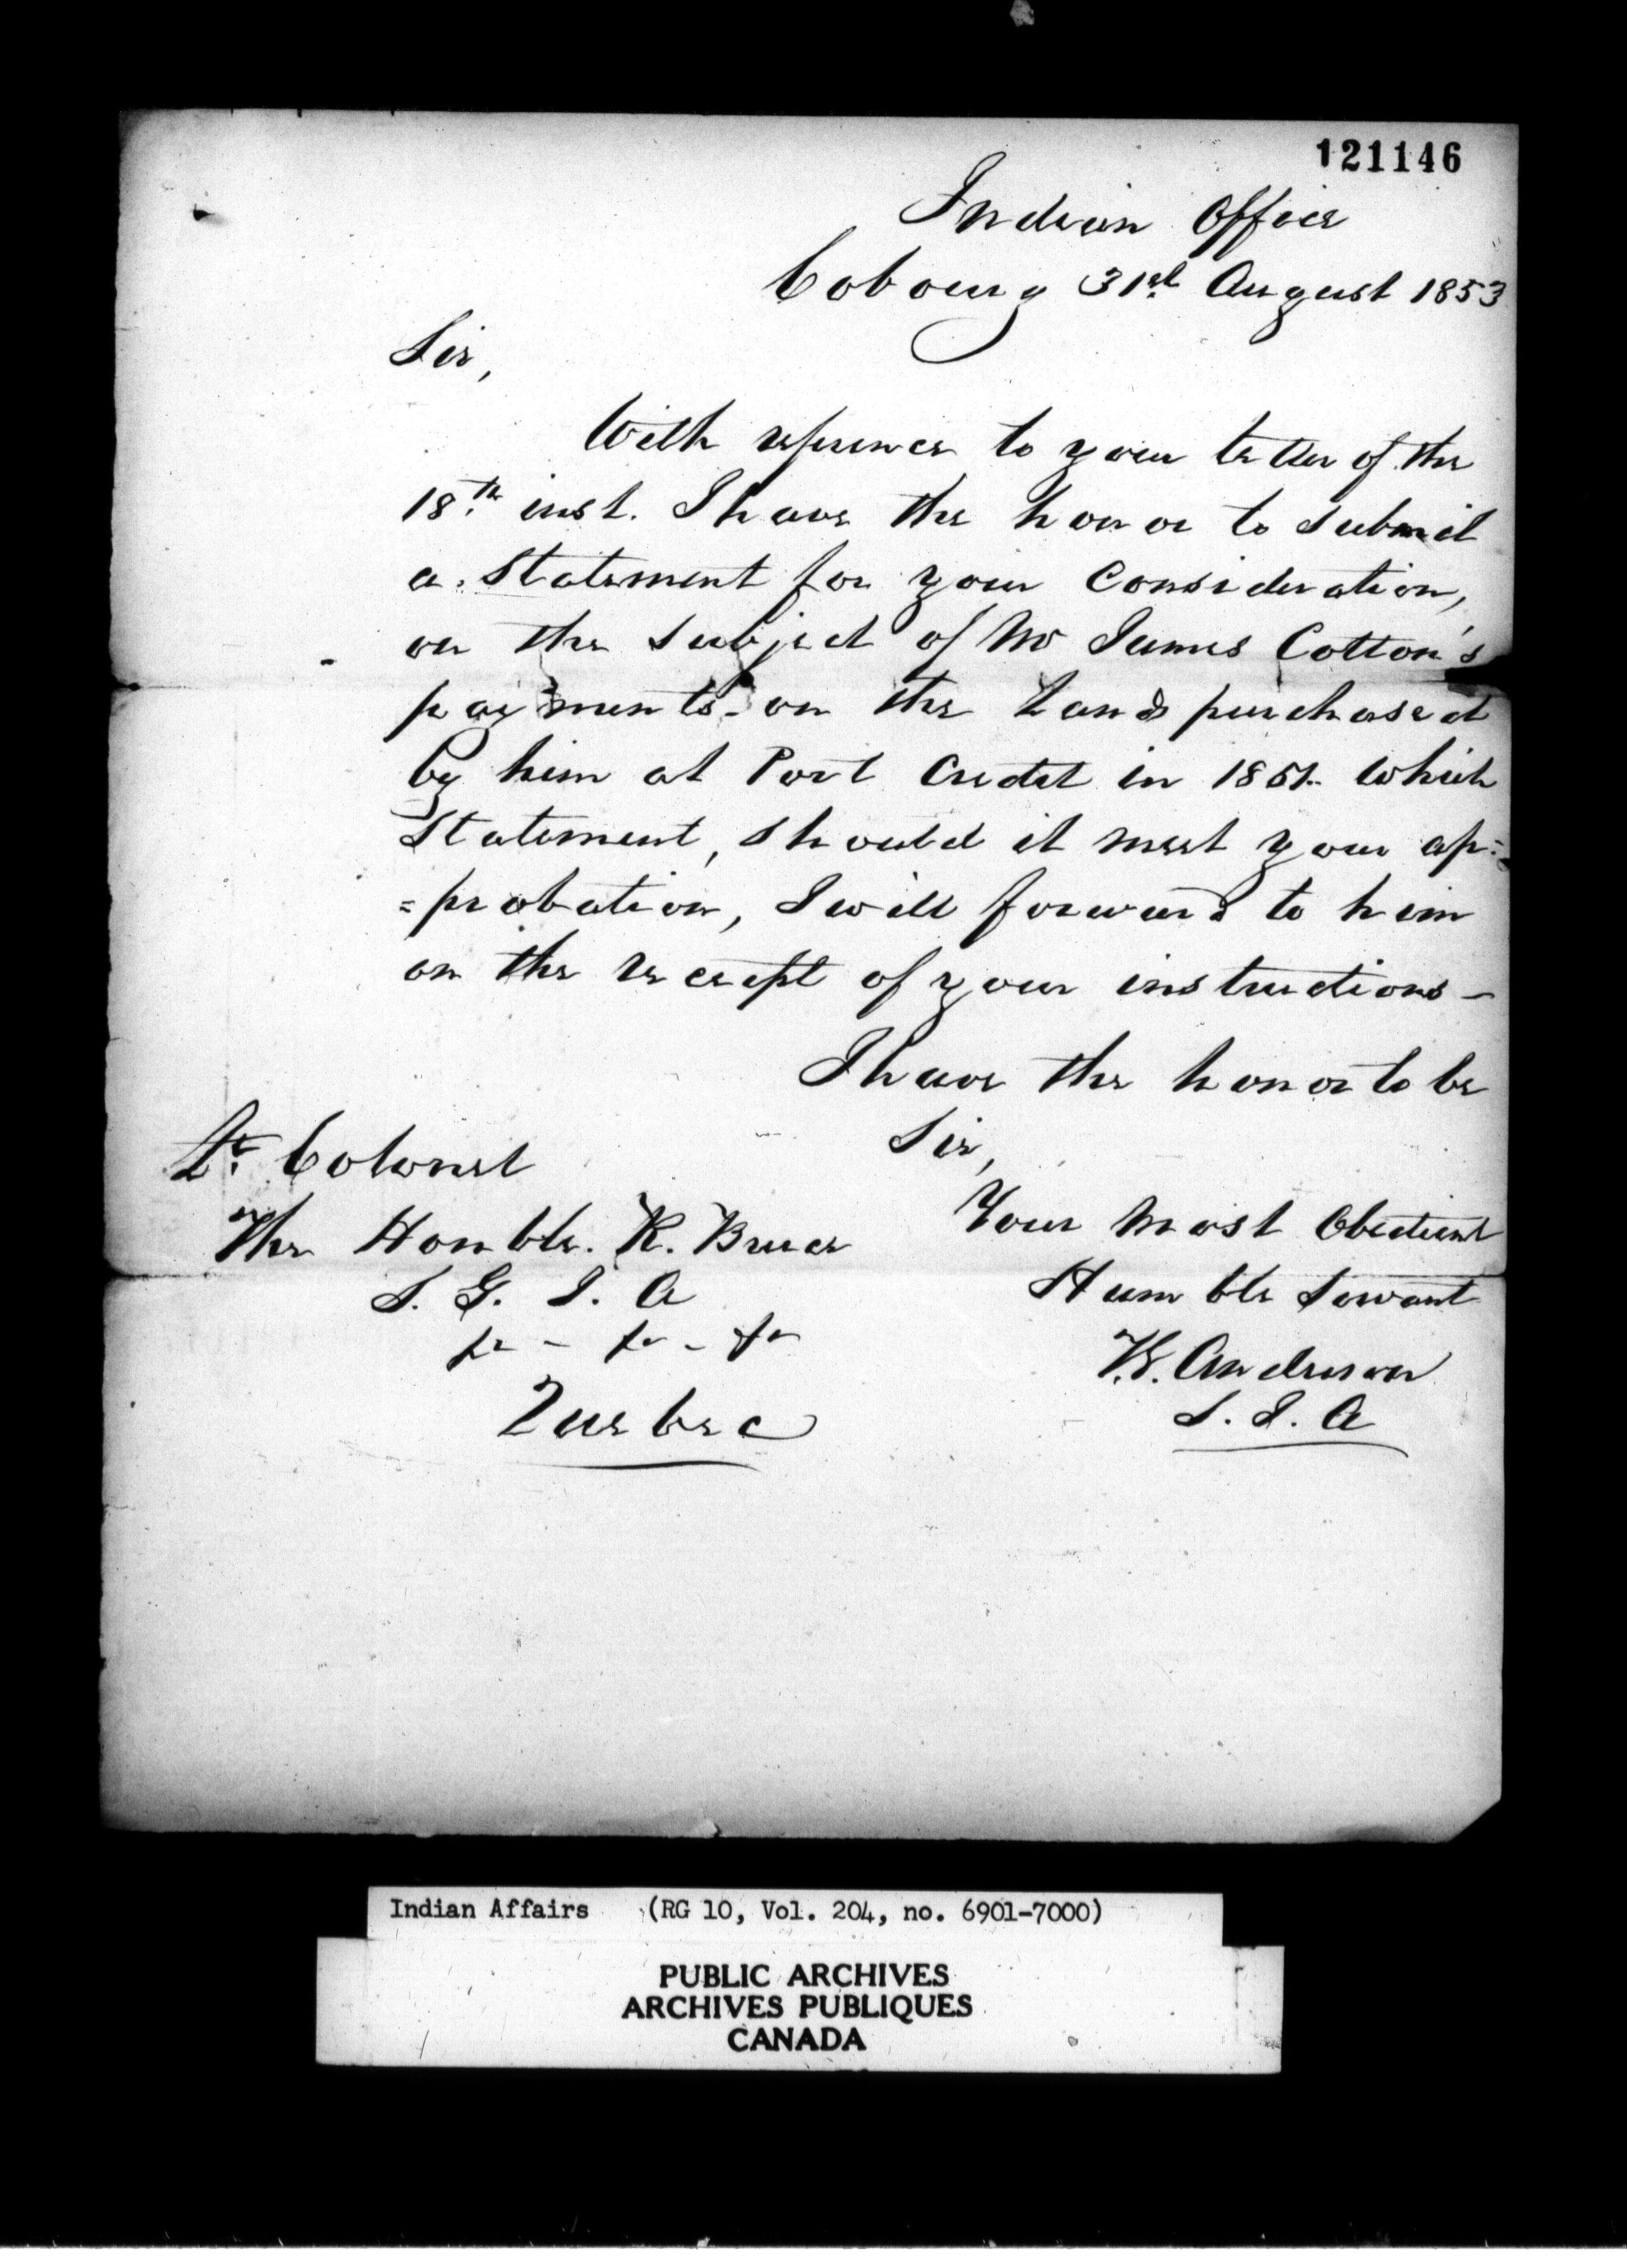 121146
Indian Office
Cobourg 31st August 1853
Sir,
With reference to your letter of the
18th inst. I have the honor to submit
a Statement for your Consideration,
on the subject of Mr James Cotton's
payments on the Land purchased
by him at Port Credit in 1851. which
Statement, should it meet your ap=
=probation, I will forward to him
on the receipt of your instructions –
I have the honor to be
Sir,
Lt. Colonel
The Honble. R. Bruce
S. G. I. A
Quebec
Your Most Obedient
Humble Servant
Anderson
S. I. A
Indian Affairs (RG 10, Vol. 204, no. 6901-7000)
PUBLIC ARCHIVES
ARCHIVES PUBLIQUES
CANADA